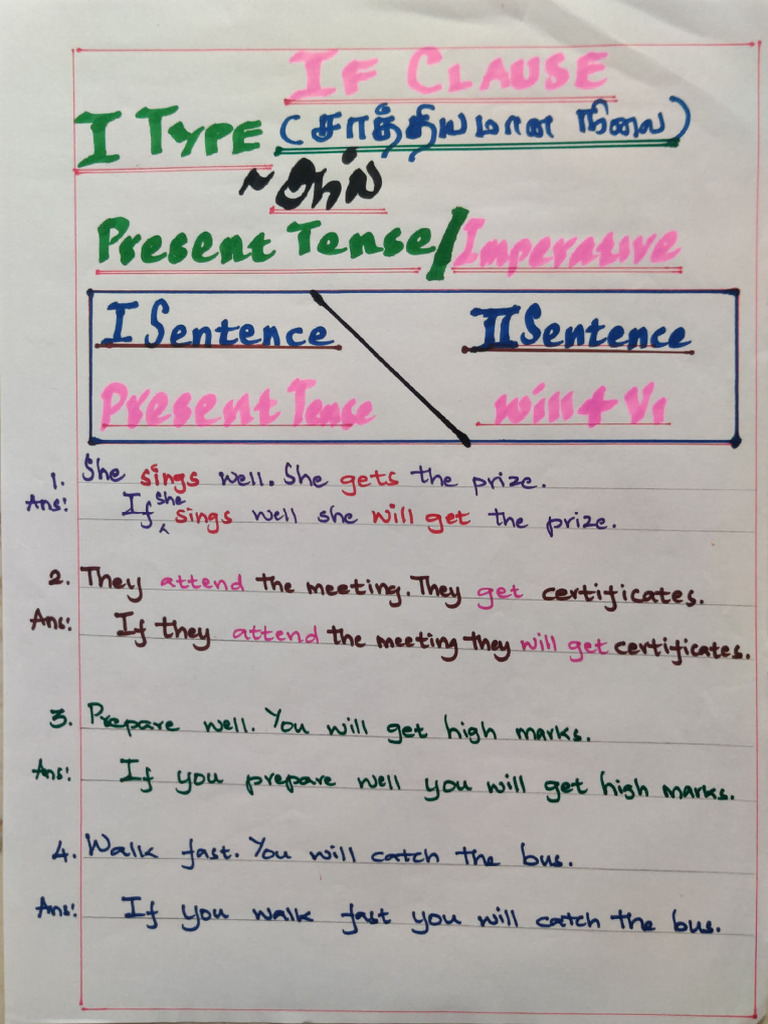 IF CLAUSE
I TYPE (சாத்தியமான நிலை)
~ஆல்
Present Tense/Imperative
I Sentence II Sentence
Present Tense will + V1
1. She sings well. She gets the prize.
Ans: If she sings well she will get the prize.
2. They attend the meeting. They get certificates.
Ans: If they attend the meeting they will get certificates.
3. Prepare well. You will get high marks.
Ans: If you prepare well you will get high marks.
4. Walk fast. You will catch the bus.
Ans: If you walk fast you will catch the bus.